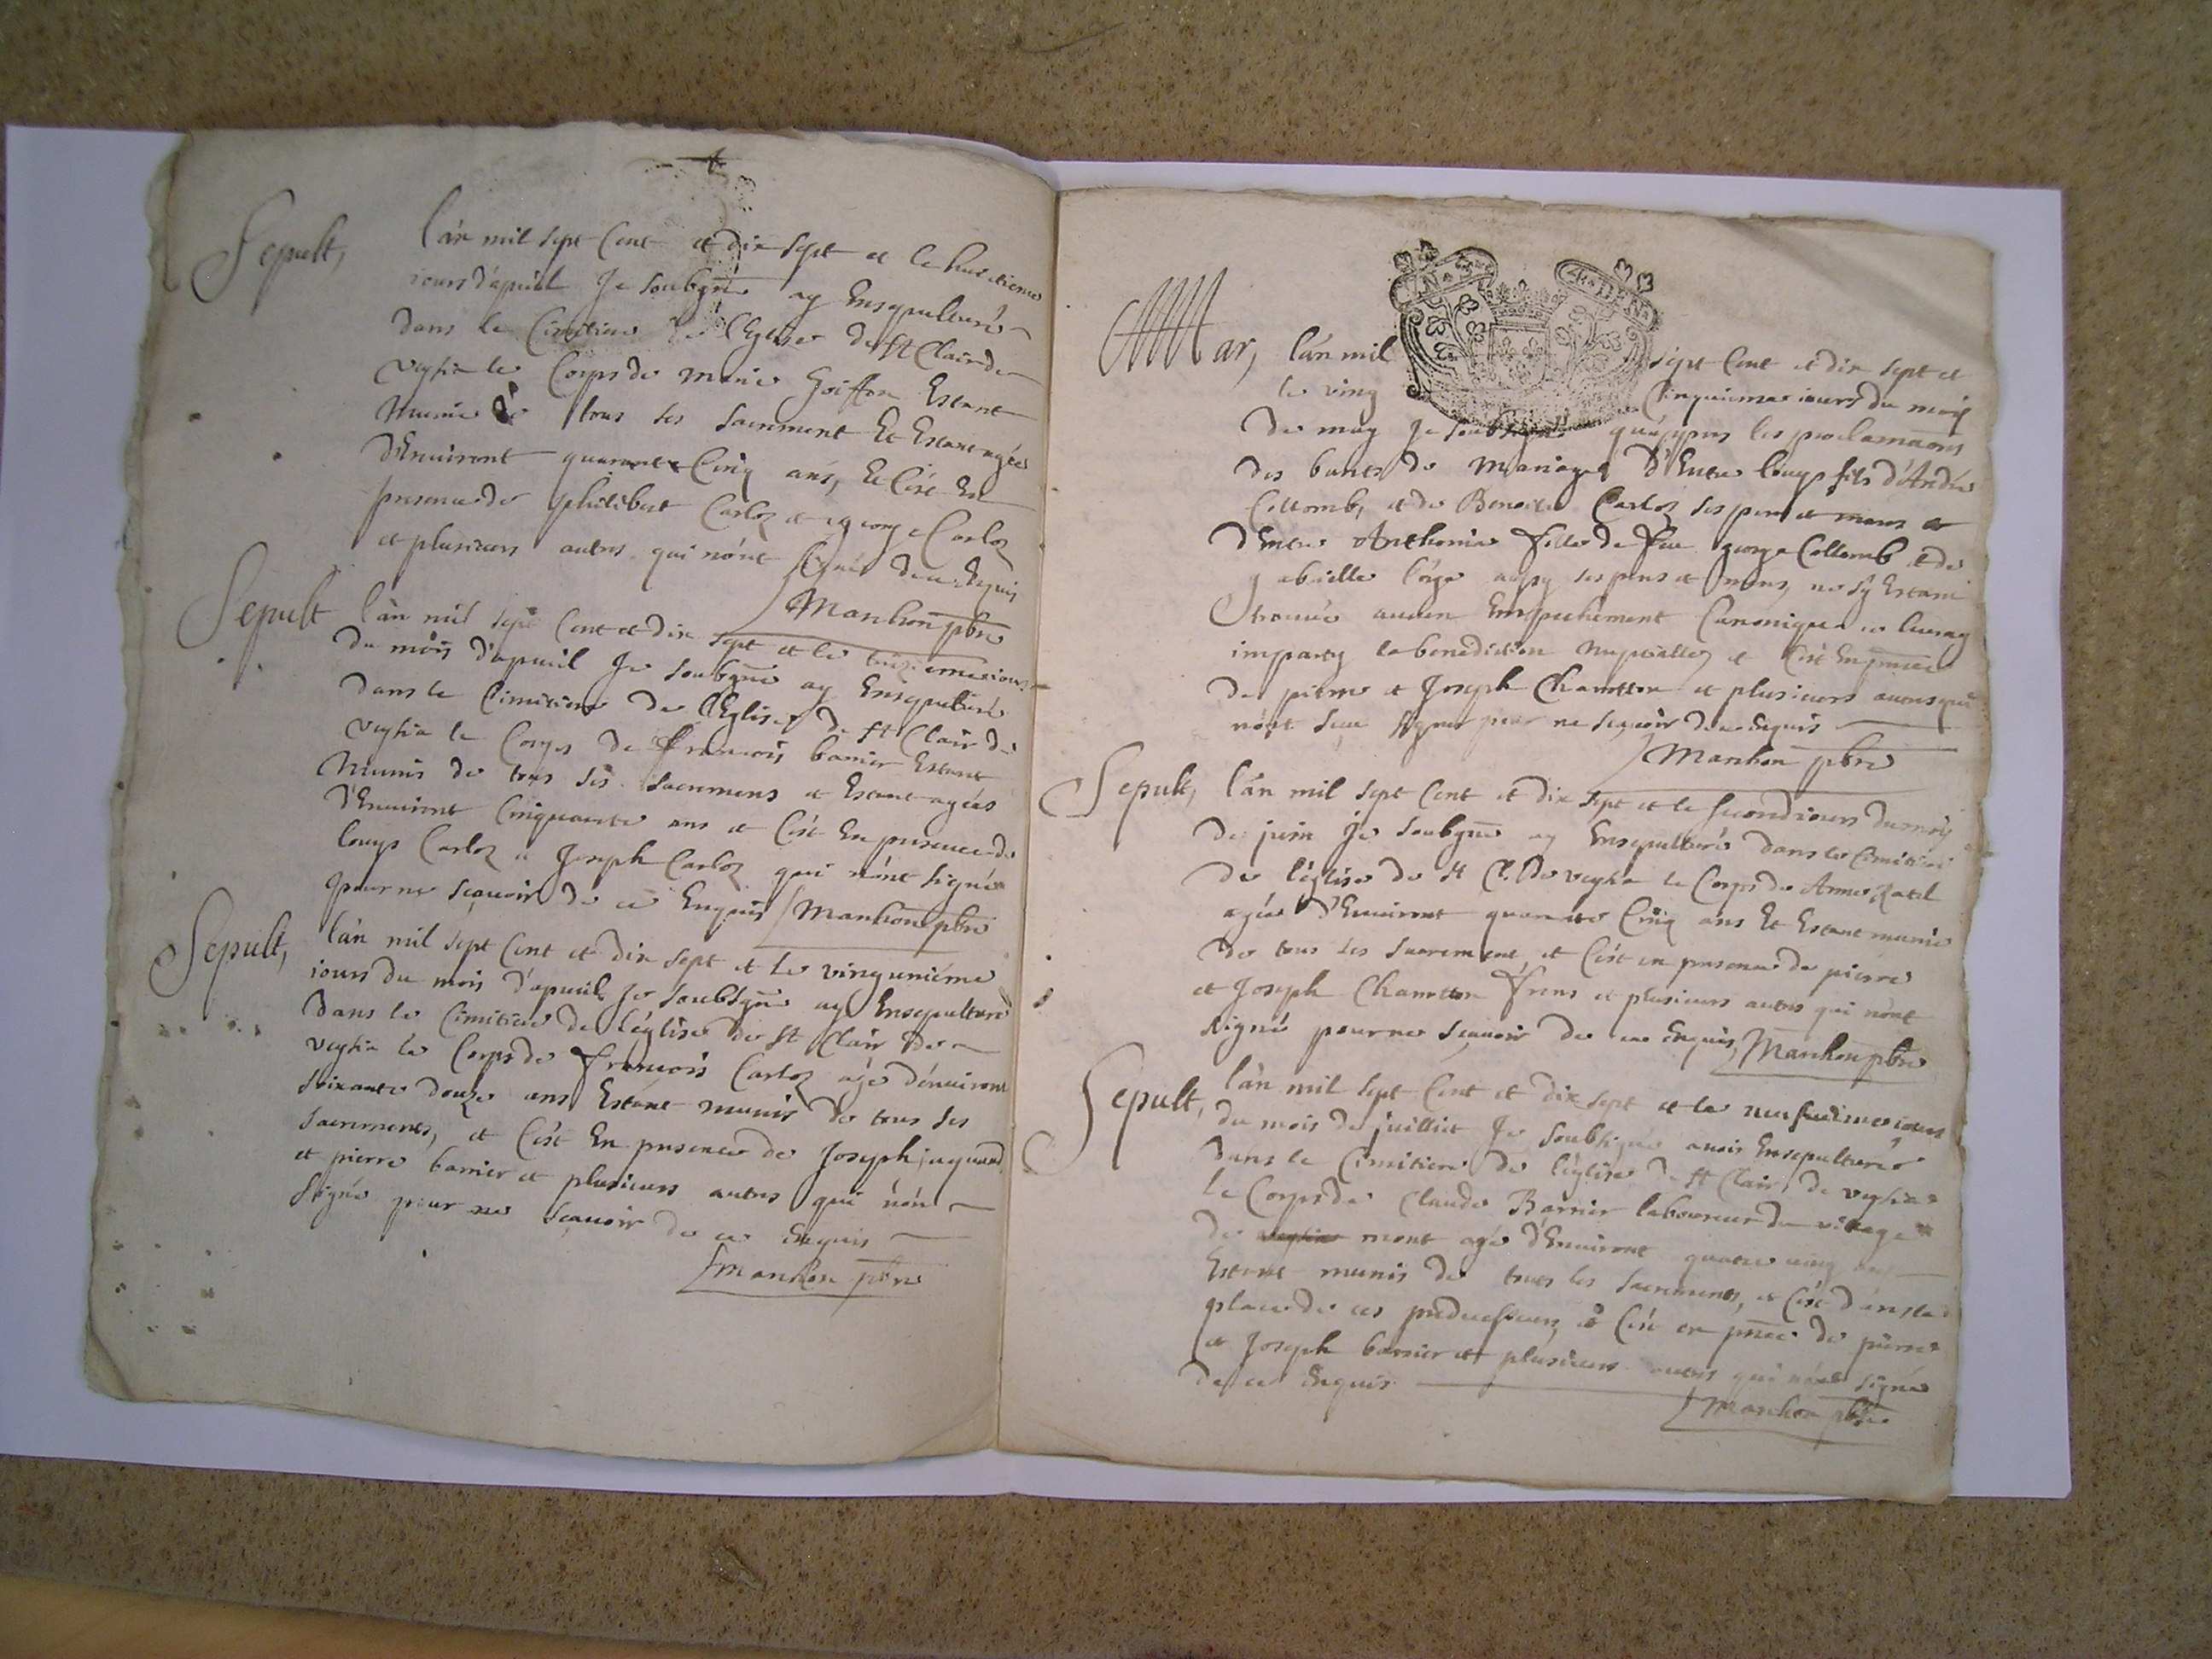 Sepult,
l'an mil sept Cent et dix sept et le huictieme
iours d'apuril Je soubgné ay Ensepulturé
dans le Cimitiere de l'Eglise de St Clair de
veysia le Corps de Marie Goiffon Estant
munie de tous ses sacrement Et Estant agée
d'Enuiront quarante Cinq ans, Et C'ést En
presence de philibert Carloz et george Carloz
et plusieurs autres qui n'ont signé de ce Enquis
Manhon pbre
Sepult
l'an mil sept Cent et dix sept et le treiziemes iours
du mois d'apuril Je soubgné ay Ensepulturé
dans le Cimitiere de l'Eglise de St Clair de
veysia le Corps de francois barnier Estant
Munis de tous ses sacremens et Estant agées
d'Enuiront Cinquante ans et C'ést En presence de
louys Carloz et Joseph Carloz qui n'ont signé
pour ne sçauoir de ce Enquis Manhon pbre
Sepult,
l'an mil sept Cent et dix sept et le vingunième
iours du mois d'apuril Je soubsigné ay Ensepulturé
dans le Cimitiere de l'église de St Clair de
veysia le Corps de francois Carloz agé d'énuiront
soixante douze ans Estant munis de tous ses
sacrements, et C'ést En presence de Joseph jaquand
et pierre barnier et plusieurs autres qui n'ón
signé pour ne sçauoir de ce Enquis
Manhon pbre
Mar, l'an mil sept Cent et dix sept et
le ving Cinquiemes iours du mois
de may Je soubsigné qu'appres les proclamaons
des bants de Mariage d'Entre louys fils d'André
Collomb, et de Benoite Carloz ses pere et mere et
d'Entre Anthonia fille de feu george Collomb et de
gabrielle aussy ses peres et meres, ne s'y Estant
trouué aucun Empechement Canonique Je leur ay
imparty la benediction Nuptialle, et C'ést En pnce
de pierre et Joseph Chanotton et plusieurs autres qui
n'ont sceu signer pour ne sçauoir de ce Enquis
Manhon pbre
Sepult,
l'an mil sept Cent et dix sept et le second iours du mois
de juin je soubgné ay Ensepulturé dans le Cimitiere
de l'église de St Cl. de veysia le Corps de Anne
agée d'Enuiront quarante Cinq ans Et Estant munie
de tous ses sacrement, et C'ést en presence de pierre
et Joseph Chanotton freres et plusieurs autres qui n'ont
signé pour ne sçauoir de ce Enquis, Manhon pbre
Sepult,
l'an mil sept Cent et dix sept et le neufuiemes iours
du mois de juilliet Je soubsigné auois Ensepulturér
dans le Cimitiere de l'église de St Clair de veysia
le Corps de Claude Barnier laboureur du village
de mont agé d'Enuiront quatre ving ans
Estant munis de touts les sacrements, et C'ést dans la
place de ces predecesseurs, et C'ést en pnce de pierre
et Joseph barnier et plusieurs autres qui n'ont signé
de ce Enquis
Manhon pbre